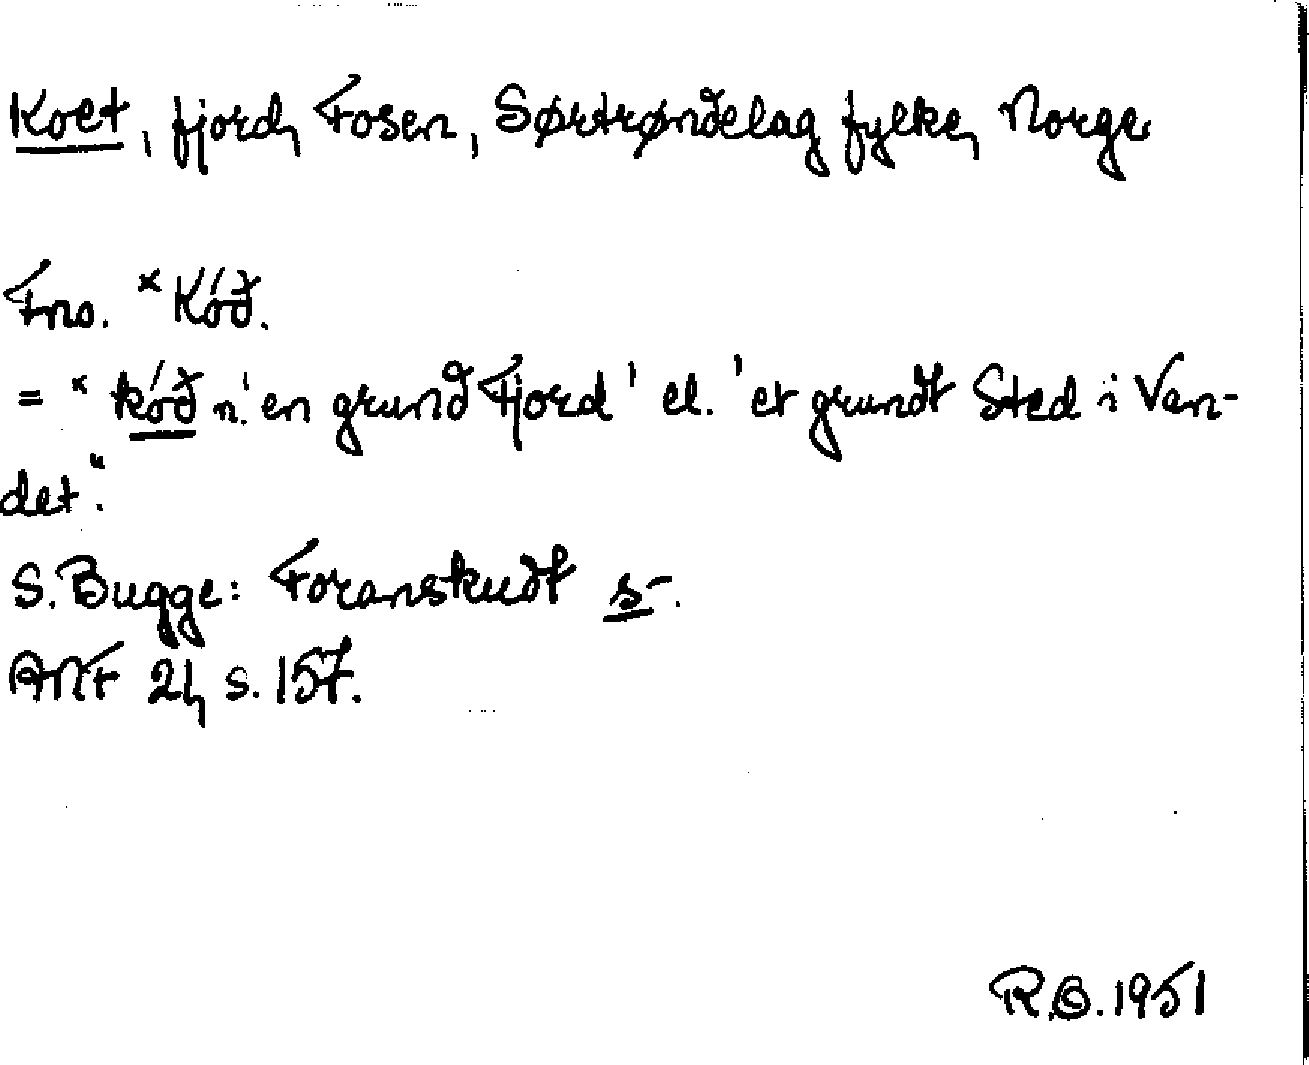 Koet, fjord, Fosen, Sørtrøndelag fylke, Norge
Fno. *Kóð.
= *kóð n. 'en grund Fjord' el. 'et grundt Sted i Van-
det".
S. Bugge: Foranskudt s-.
ANF 21, s. 157.
R.B. 1951